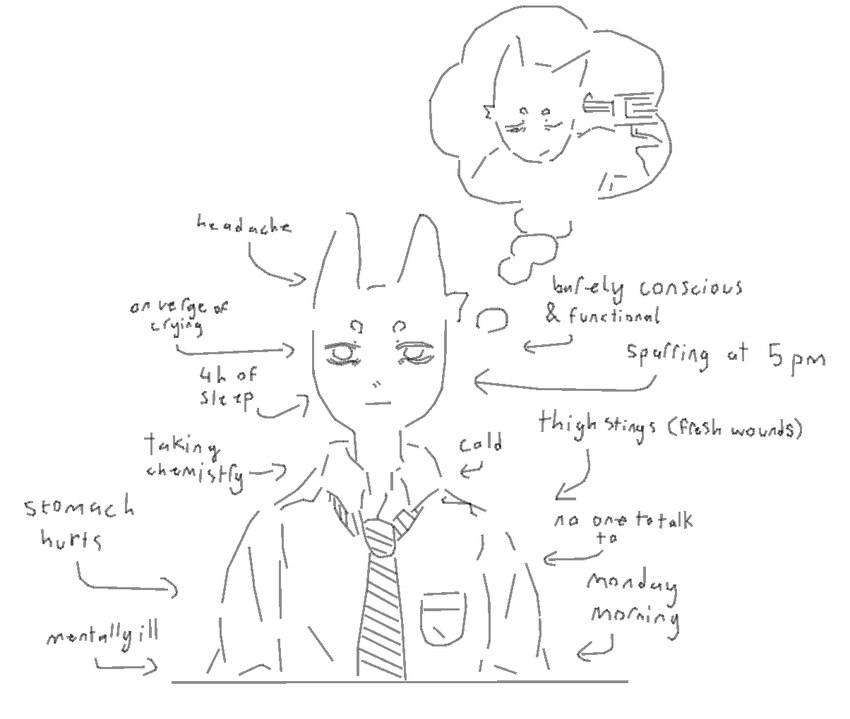 headache
on verge of
crying
4h of
sleep
taking
chemistry
stomach
hurts
mentally ill
barely conscious
& functional
sparring at 5pm
thigh stings (fresh wounds)
cold
no one to talk
to
monday
morning